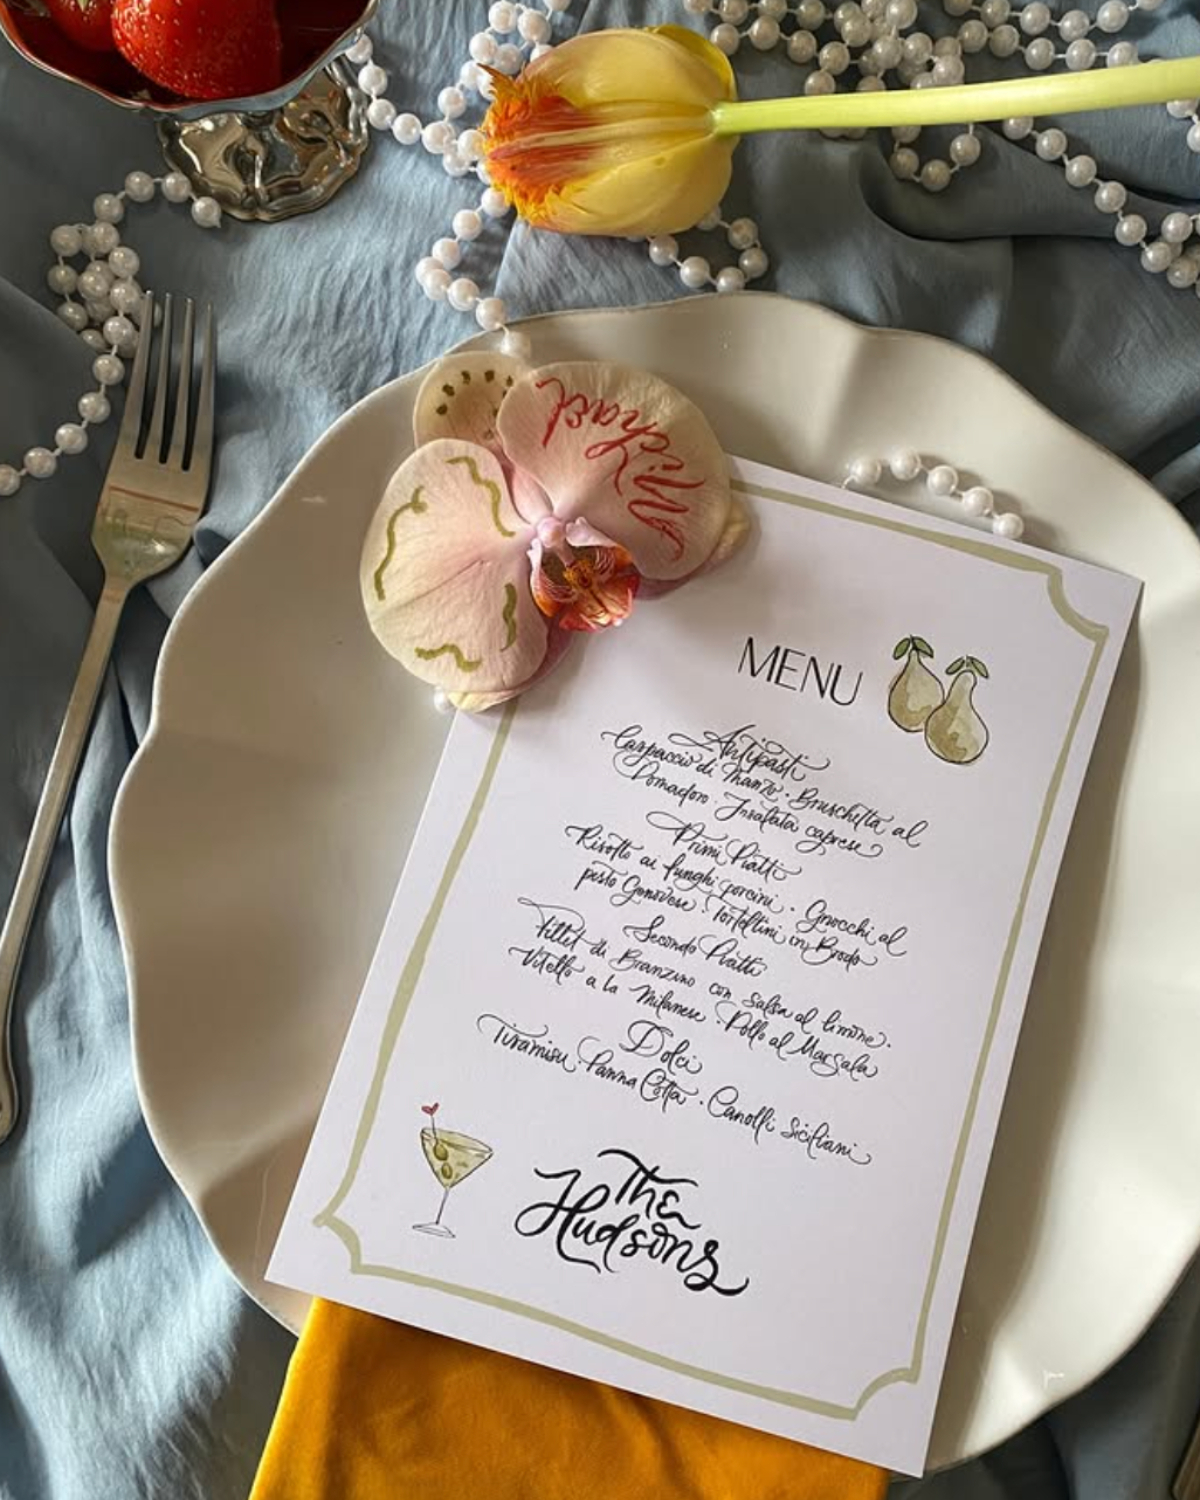 Michael
MENU
Antipasti
Carpaccio di Manzo · Bruschetta al
Pomodoro · Insalata caprese
Primi Piatti
Risotto ai funghi porcini · Gnocchi al
pesto Genovese · Tortellini in Brodo
Secondo Piatti
Fillet di Branzino con salsa al limone ·
Vitello a la Milanese · Pollo al Marsala
Dolci
Tiramisu · Panna Cotta · Canolli Siciliani
The
Hudsons